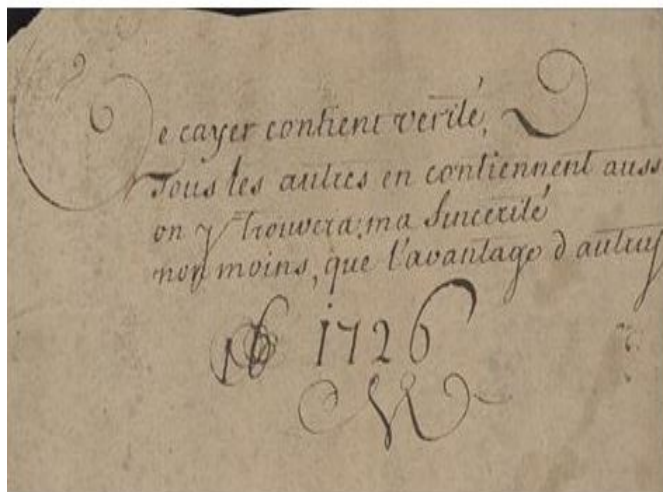 Ce cayer contient verité,
Tous les autres en contiennent auss
on y trouvera ma sincerité
non moins, que l'avantage d'autruy
16 1726